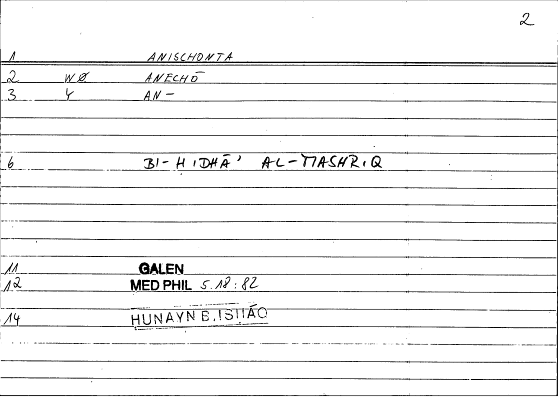 2
1 ANISCHONTA
2 WØ ANECHŌ
3 Y AN-
6 BI-HIDHĀʾ AL-MASHRIQ
11 GALEN
12 MED PHIL 5.18:82
14 HUNAYN B. ISHĀQ